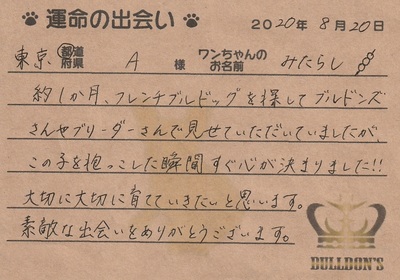 運命の出会い 2020年8月20日
東京 都道府県 A 様 ワンちゃんのお名前 みたらし
約1か月、フレンチブルドッグを探してブルドンズ
さんやブリーダーさんで見せていただいていましたが、
この子を抱っこした瞬間すぐ心が決まりました!!
大切に大切に育てていきたいと思います。
素敵な出会いをありがとうございます。
BULLDON'S